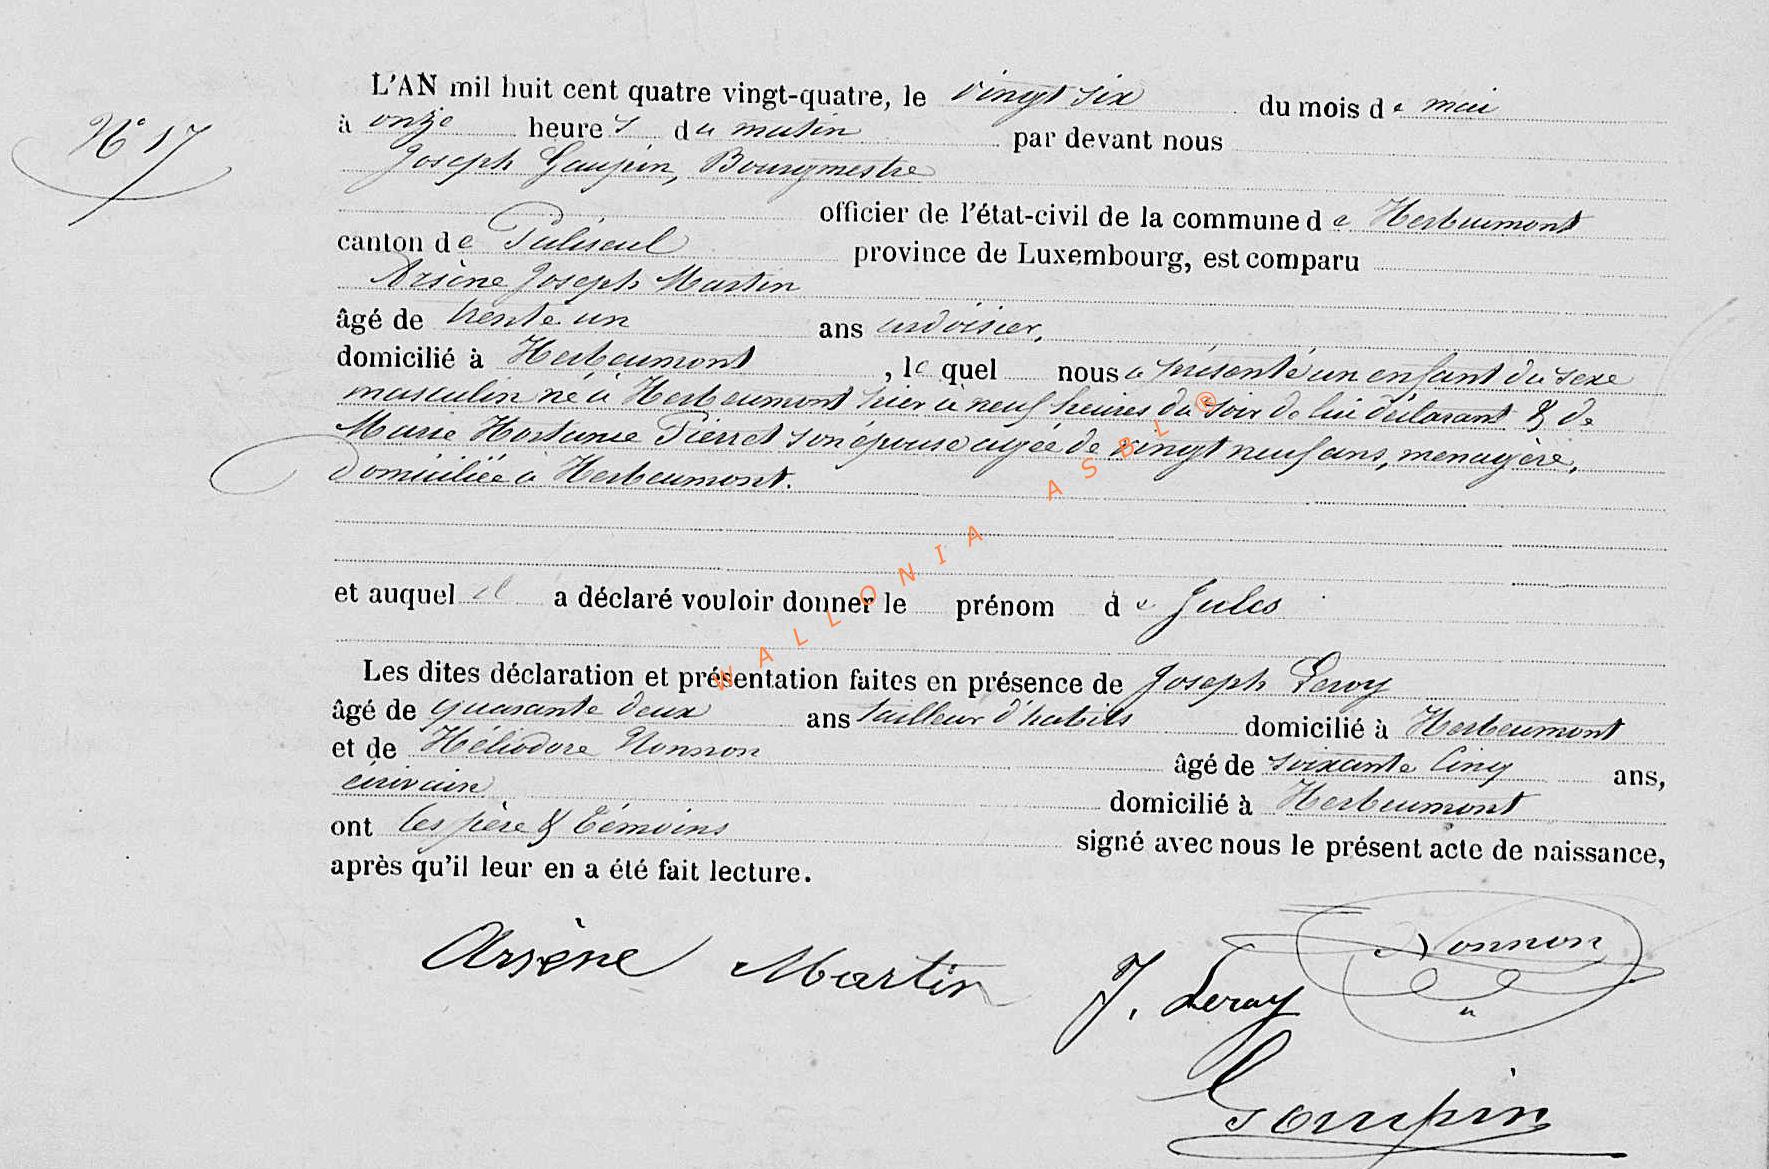 N° 17
L'AN mil huit cent quatre vingt-quatre, le vingt six du mois de mai
à onze heures du matin par devant nous
Joseph Goupin, Bourgmestre
officier de l'état-civil de la commune de Herbeumont
canton de Paliseul province de Luxembourg, est comparu
Arsène Joseph Martin
âgé de trente un ans ardoisier,
domicilié à Herbeumont, lequel nous a présenté un enfant du sexe
masculin né à Herbeumont hier à neuf heures du soir de lui déclarant & de
Marie Hortense Pierret son épouse agée de vingt neuf ans, menagère,
domiciliée à Herbeumont.
et auquel il a déclaré vouloir donner le prénom de Jules
Les dites déclaration et présentation faites en présence de Joseph Leroy
âgé de quarante deux ans tailleur d'habits domicilié à Herbeumont
et de Héliodore Nonnon âgé de soixante cinq ans,
écrivain domicilié à Herbeumont
ont les père & témoins signé avec nous le présent acte de naissance,
après qu'il leur en a été fait lecture.
Arsène Martin J. Leroy Nonnon
Goupin
WALLONIA ASBL ®